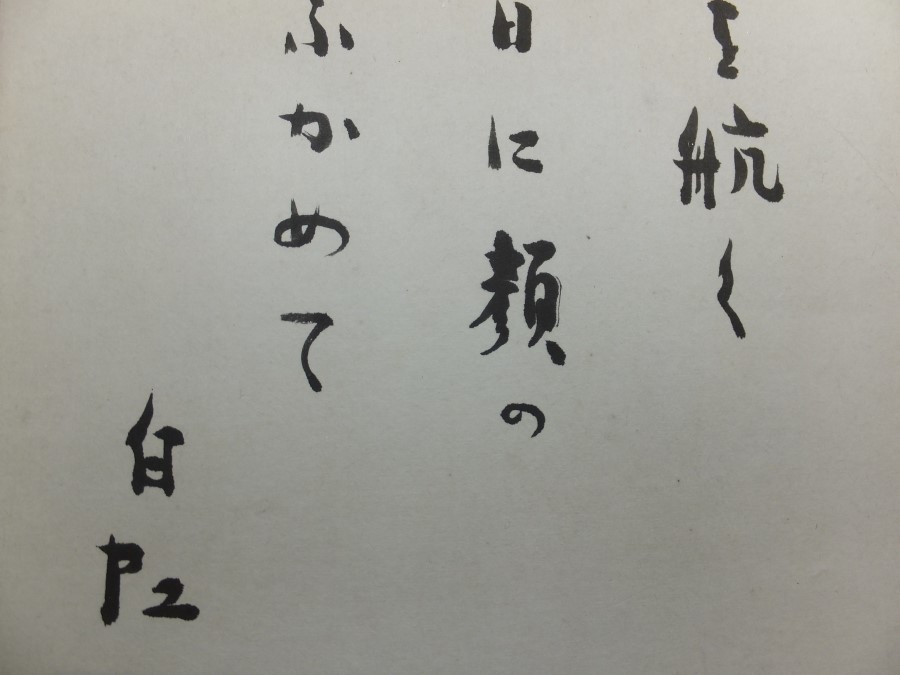 を航く
日に顔の
ふかめて
白虹